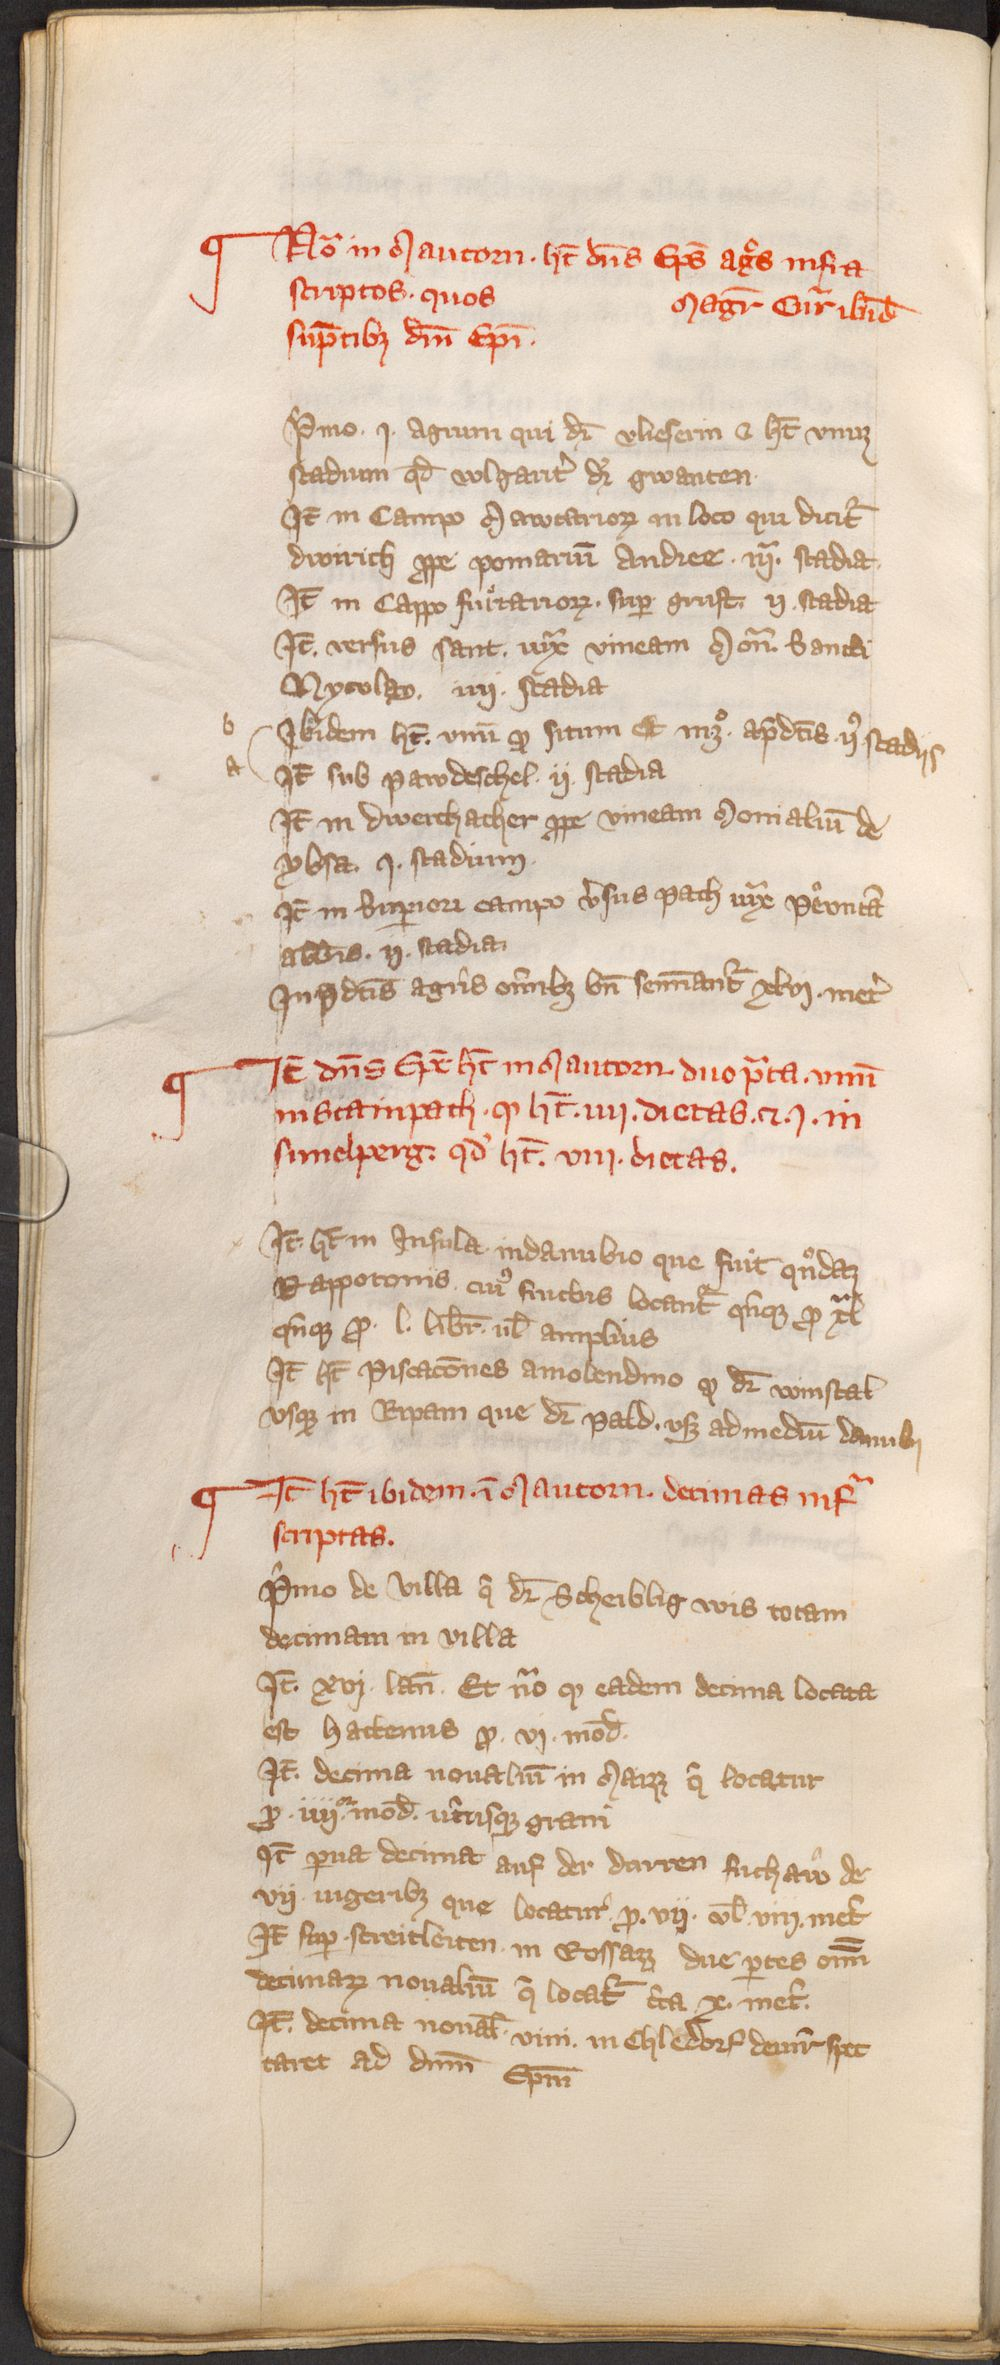 ¶ No͞ in Mautorn . ht͞ dn͞s Ep͞s agᵒs infra
scriptos . quos Magr͞ Cur͞ ibid͞
sup͞tibꝫ dn͞i Ep͞i .
P͞mo . j . agrum qui dr͞ vlieserin & ht͞ vnuꝫ
stadium qd͞ wlgarit͛ dr͛ gwanten .
Jt͞ in Campo Mawtarioꝝ in loco qui dicit͛
drvirich ꝓpe pomariu͞ Andree . iijᵃ . stadia .
Jt͞ in Cappo furtarioꝝ . sup͛ grust . ij . stadia
Jt͞ . versus sant . iuxᵃ vineam Mon͞ . Sancti
Nycolay . iiij . stadia
b Jbidem ht͞ . vnu͞ qᵒ situm est inꝫᵒ . ap͞dc͞is ijᵒ stadijs
a Jt͞ sub pawdeschel . ij . stadia
Jt͞ in dwerchacher ꝓpe vineam Monialiu͞ de
ybsa . j . stadium .
Jt͞ in supiori campo v͛sus pach iuxᵃ peunta͞
abb͞is . ij . stadia
Jn p͞dc͞is agris om͞ibꝫ bn͞ semi͞ant͛ xlvj . met͛
¶ Jt͞ dn͞s Ep͞c ht͞ in Mautorn . duo pᵃta . vnu͞
in stainpach . qᵒ ht͞ . iiij . dietas . & . j . in
simelperg . qd͛ ht͞ . viij . dietas .
Jt͞ . ht͞ in Jnsula . in danubio que fuit qᵒndaꝫ
Rappotonis . cuiᵒ fructus locant͛ qn͛qꝫ ꝓ xlᵃ
qn͛qꝫ ꝓ . l . libr͞ . vl͞ amplius
Jt͞ ht͞ Piscaco͞nes a molendino qᵒ dr͞ winstal
vsqꝫ in Ripam que dr͞ pald . vsqꝫ ad mediu͞ danubij
¶ Jt͞ ht͞ ibidem . i͞ Mautorn . decimas infᵃ
scriptas .
P͛mo de villa q͛ dr͞ Scheiblig wis totam
decimam in villa
Jt͞ . xvj . lan͞ . Et no͞ qᵒ eadem decima locata
est hactenus ꝓ . vj . mod͞ .
Jt͞ . decima noualiu͞ in Marꝝ q͛ locatur
ꝓ . iiijᵒʳ . mod͞ . vt͛usqꝫ grani
Jt͞ ꝑua decima auf der durren fuchaw de
vij iugeribꝫ que locatur . ꝓ . vij . vl͞ . viij . met͛
Jt͞ sup͛ . streitleiten . in Rossaꝫ due ꝑtes om͞i
decimaꝝ noualiu͞ q͛ locat͛ c͛ca x . met͛ .
Jt͞ . decima noual͞ . vini . in Chledorf den͛r spec
taret ad dnm͞ Epm͞